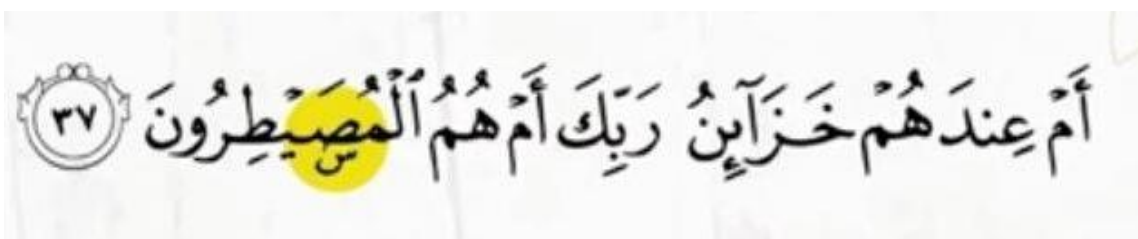 أَمْ عِندَهُمْ خَزَآئِنُ رَبِّكَ أَمْ هُمُ ٱلْمُصَۜيْطِرُونَ ٣٧